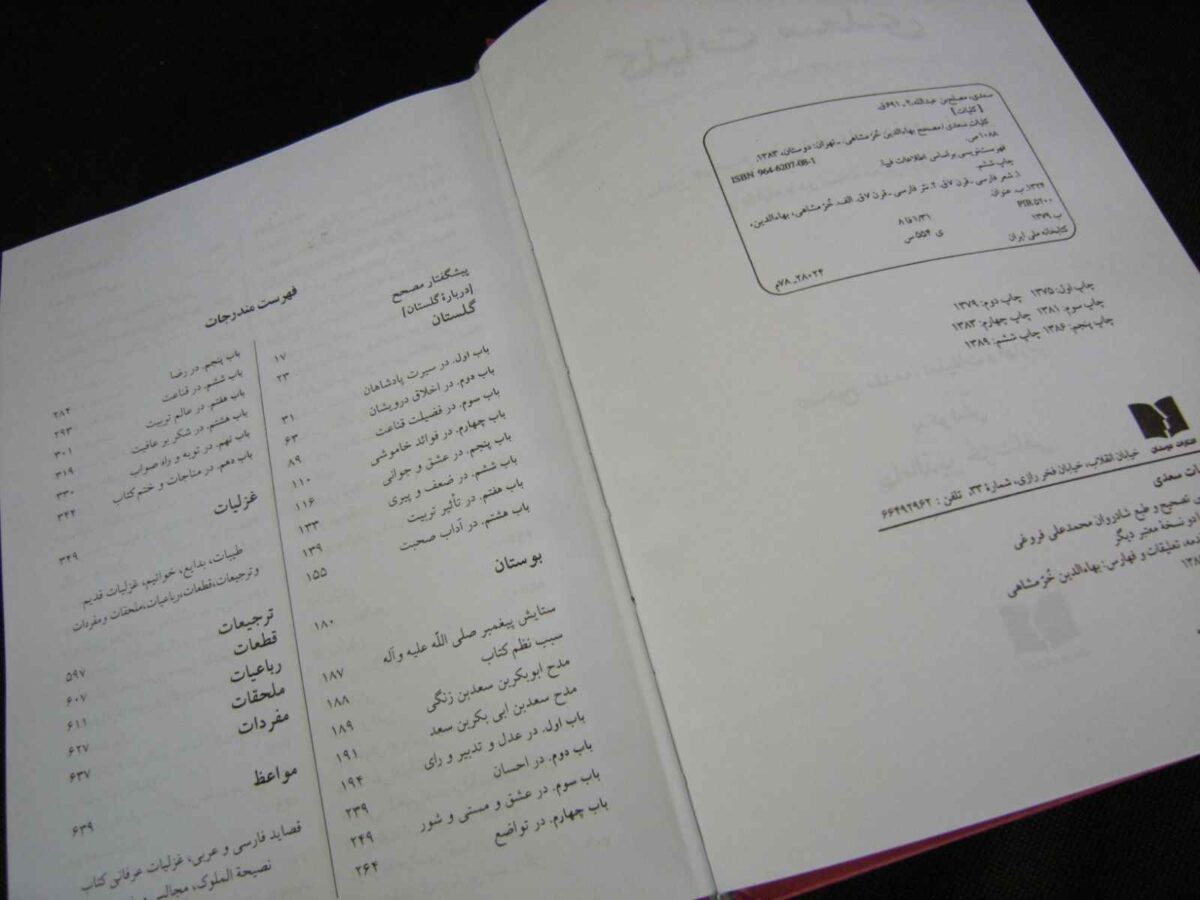 سعدی، مصلح‌بن عبدالله، ؟ ـ ۶۹۱ق.
[کلیات]
کلیات سعدی / مصحح بهاءالدین خرّمشاهی. ـ تهران: دوستان، ۱۳۸۳.
۱۰۸۸ ص.
ISBN 964-6207-08-1
فهرست‌نویسی براساس اطلاعات فیپا.
چاپ ششم.
۱. شعر فارسی ـ قرن ۷ق. ۲. نثر فارسی ـ قرن ۷ق. الف. خرّمشاهی، بهاءالدین،
۱۳۲۴. ب. عنوان.
PIR ۵۲۰۰
۸فا۱/۳۱
ب ۱۳۷۹
ی ۵۵۴ س
کتابخانه ملی ایران
۲۸۰۲۴ـ۷۸م
چاپ اول: ۱۳۷۵ چاپ دوم: ۱۳۷۹
چاپ سوم: ۱۳۸۱ چاپ چهارم: ۱۳۸۳
چاپ پنجم: ۱۳۸۶ چاپ ششم: ۱۳۸۹
انتشارات دوستان
خیابان انقلاب، خیابان فخر رازی، شمارهٔ ۳۳، تلفن: ۶۶۴۹۲۹۶۲
ات سعدی
تصحیح و طبع شادروان محمدعلی فروغی
دو نسخهٔ معتبر دیگر
تعلیقات و فهارس: بهاءالدین خرّمشاهی
فهرست مندرجات
پیشگفتار مصحح ۱۷
[دربارهٔ گلستان] ۲۳
گلستان
باب اول. در سیرت پادشاهان ۳۱
باب دوم. در اخلاق درویشان ۶۳
باب سوم. در فضیلت قناعت ۸۹
باب چهارم. در فوائد خاموشی ۱۱۰
باب پنجم. در عشق و جوانی ۱۱۶
باب ششم. در ضعف و پیری ۱۳۳
باب هفتم. در تأثیر تربیت ۱۳۹
باب هشتم. در آداب صحبت ۱۵۵
بوستان ۱۸۰
ستایش پیغمبر صلی الله علیه وآله ۱۸۷
سبب نظم کتاب ۱۸۸
مدح ابوبکربن سعدبن زنگی ۱۸۹
مدح سعدبن ابی بکربن سعد ۱۹۱
باب اول. در عدل و تدبیر و رای ۱۹۴
باب دوم. در احسان ۲۳۹
باب سوم. در عشق و مستی و شور ۲۴۹
باب چهارم. در تواضع ۲۶۴
باب پنجم. در رضا ۲۸۴
باب ششم. در قناعت ۲۹۳
باب هفتم. در عالم تربیت ۳۰۱
باب هشتم. در شکر بر عافیت ۳۱۹
باب نهم. در توبه و راه صواب ۳۳۰
باب دهم. در مناجات و ختم کتاب ۳۴۴
غزلیات ۳۴۹
طیبات، بدایع، خواتیم، غزلیات قدیم
و ترجیعات، قطعات، رباعیات، ملحقات و مفردات
ترجیعات ۵۹۷
قطعات ۶۰۷
رباعیات ۶۱۱
ملحقات ۶۲۷
مفردات ۶۳۷
مواعظ ۶۳۹
قصاید فارسی و عربی، غزلیات عرفانی کتاب
نصیحة الملوک، مجالس